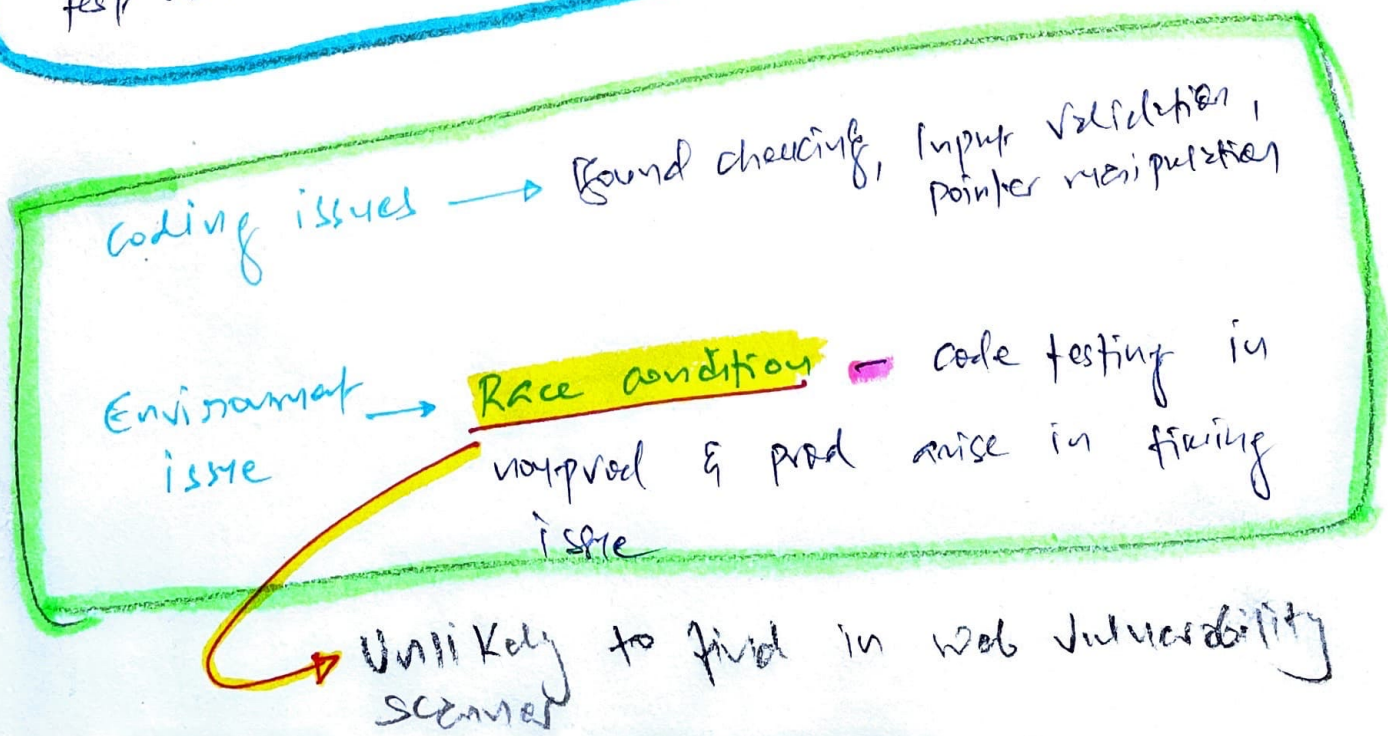 Coding issues → Bound checking, Input validation,
pointer manipulation
Environment → Race condition - code testing in
issue
nonprod & prod arise in timing
issue
Unlikely to find in web vulnerability
scanner